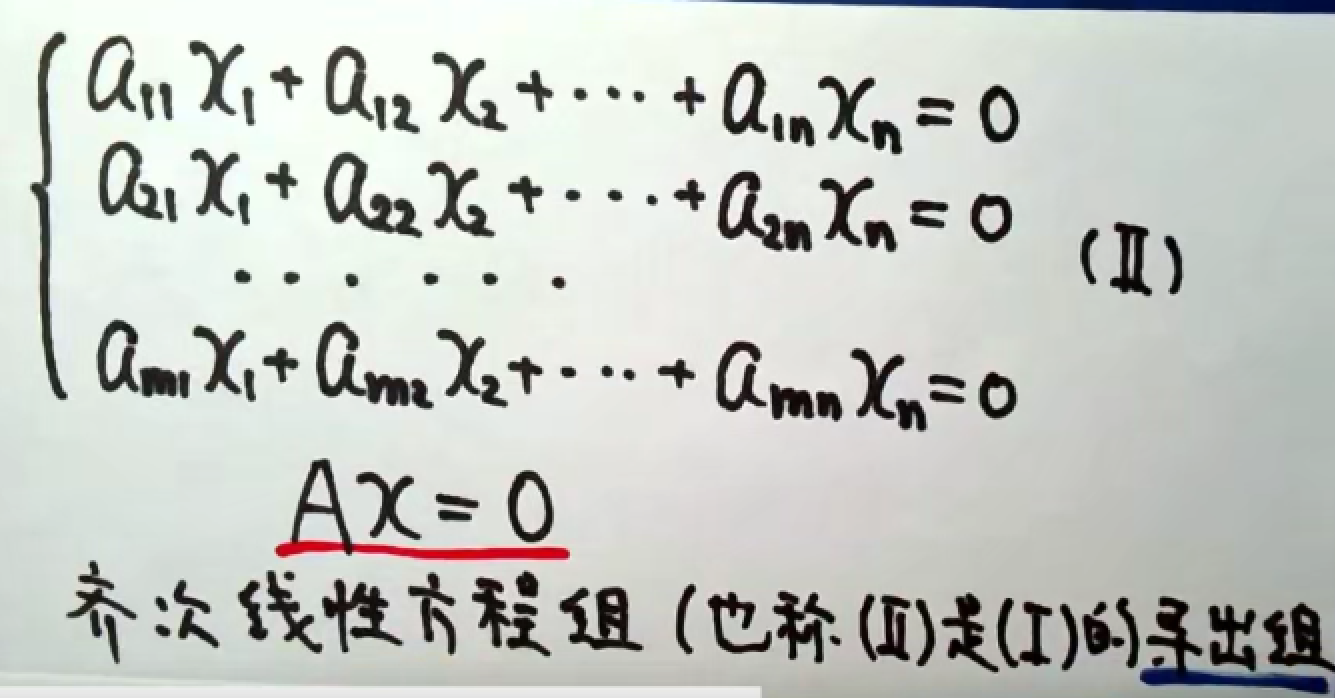 a₁₁x₁ + a₁₂x₂ + ··· + a₁ₙxₙ = 0
a₂₁x₁ + a₂₂x₂ + ··· + a₂ₙxₙ = 0
(Ⅱ)
· · · · · ·
aₘ₁x₁ + aₘ₂x₂ + ··· + aₘₙxₙ = 0
Ax = 0
齐次线性方程组(也称(Ⅱ)是(Ⅰ)的)导出组